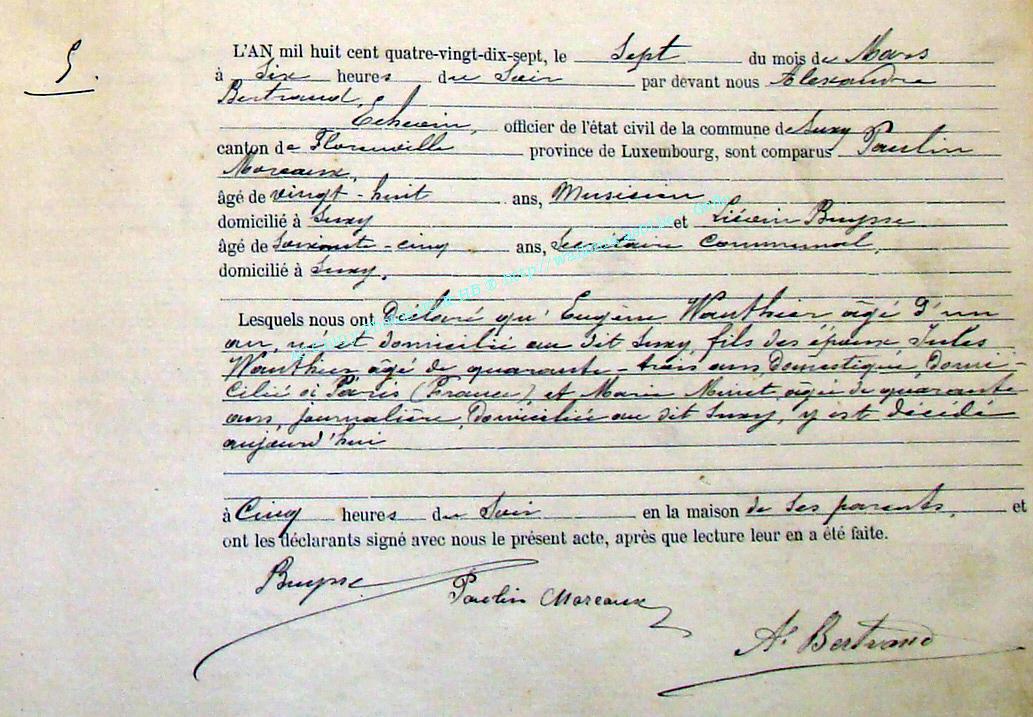 5.
L'AN mil huit cent quatre-vingt-dix-sept, le Sept du mois de Mars
à Six heures du Soir par devant nous Alexandre
Bertrand,
Echevin, officier de l'état civil de la commune de Suxy
canton de Florenville province de Luxembourg, sont comparus Paulin
Moreaux,
âgé de vingt-huit ans, Musicien
domicilié à Suxy et Liévin Buysse
âgé de Soixante-cinq ans, Secrétaire Communal,
domicilié à Suxy.
Lesquels nous ont Déclaré qu'Eugène Wauthier âgé d'un
an, né et domicilié au dit Suxy, fils des époux Jules
Wauthier âgé de quarante-trois ans, Domestique, Domi
cilié à Paris (France), et Marie Minet, âgée de quarante
ans, journalière, Domiciliée au dit Suxy, y est décédé
aujourd'hui
à Cinq heures du Soir en la maison de ses parents, et
ont les déclarants signé avec nous le présent acte, après que lecture leur en a été faite.
Buysse
Paulin Moreaux
Ae Bertrand